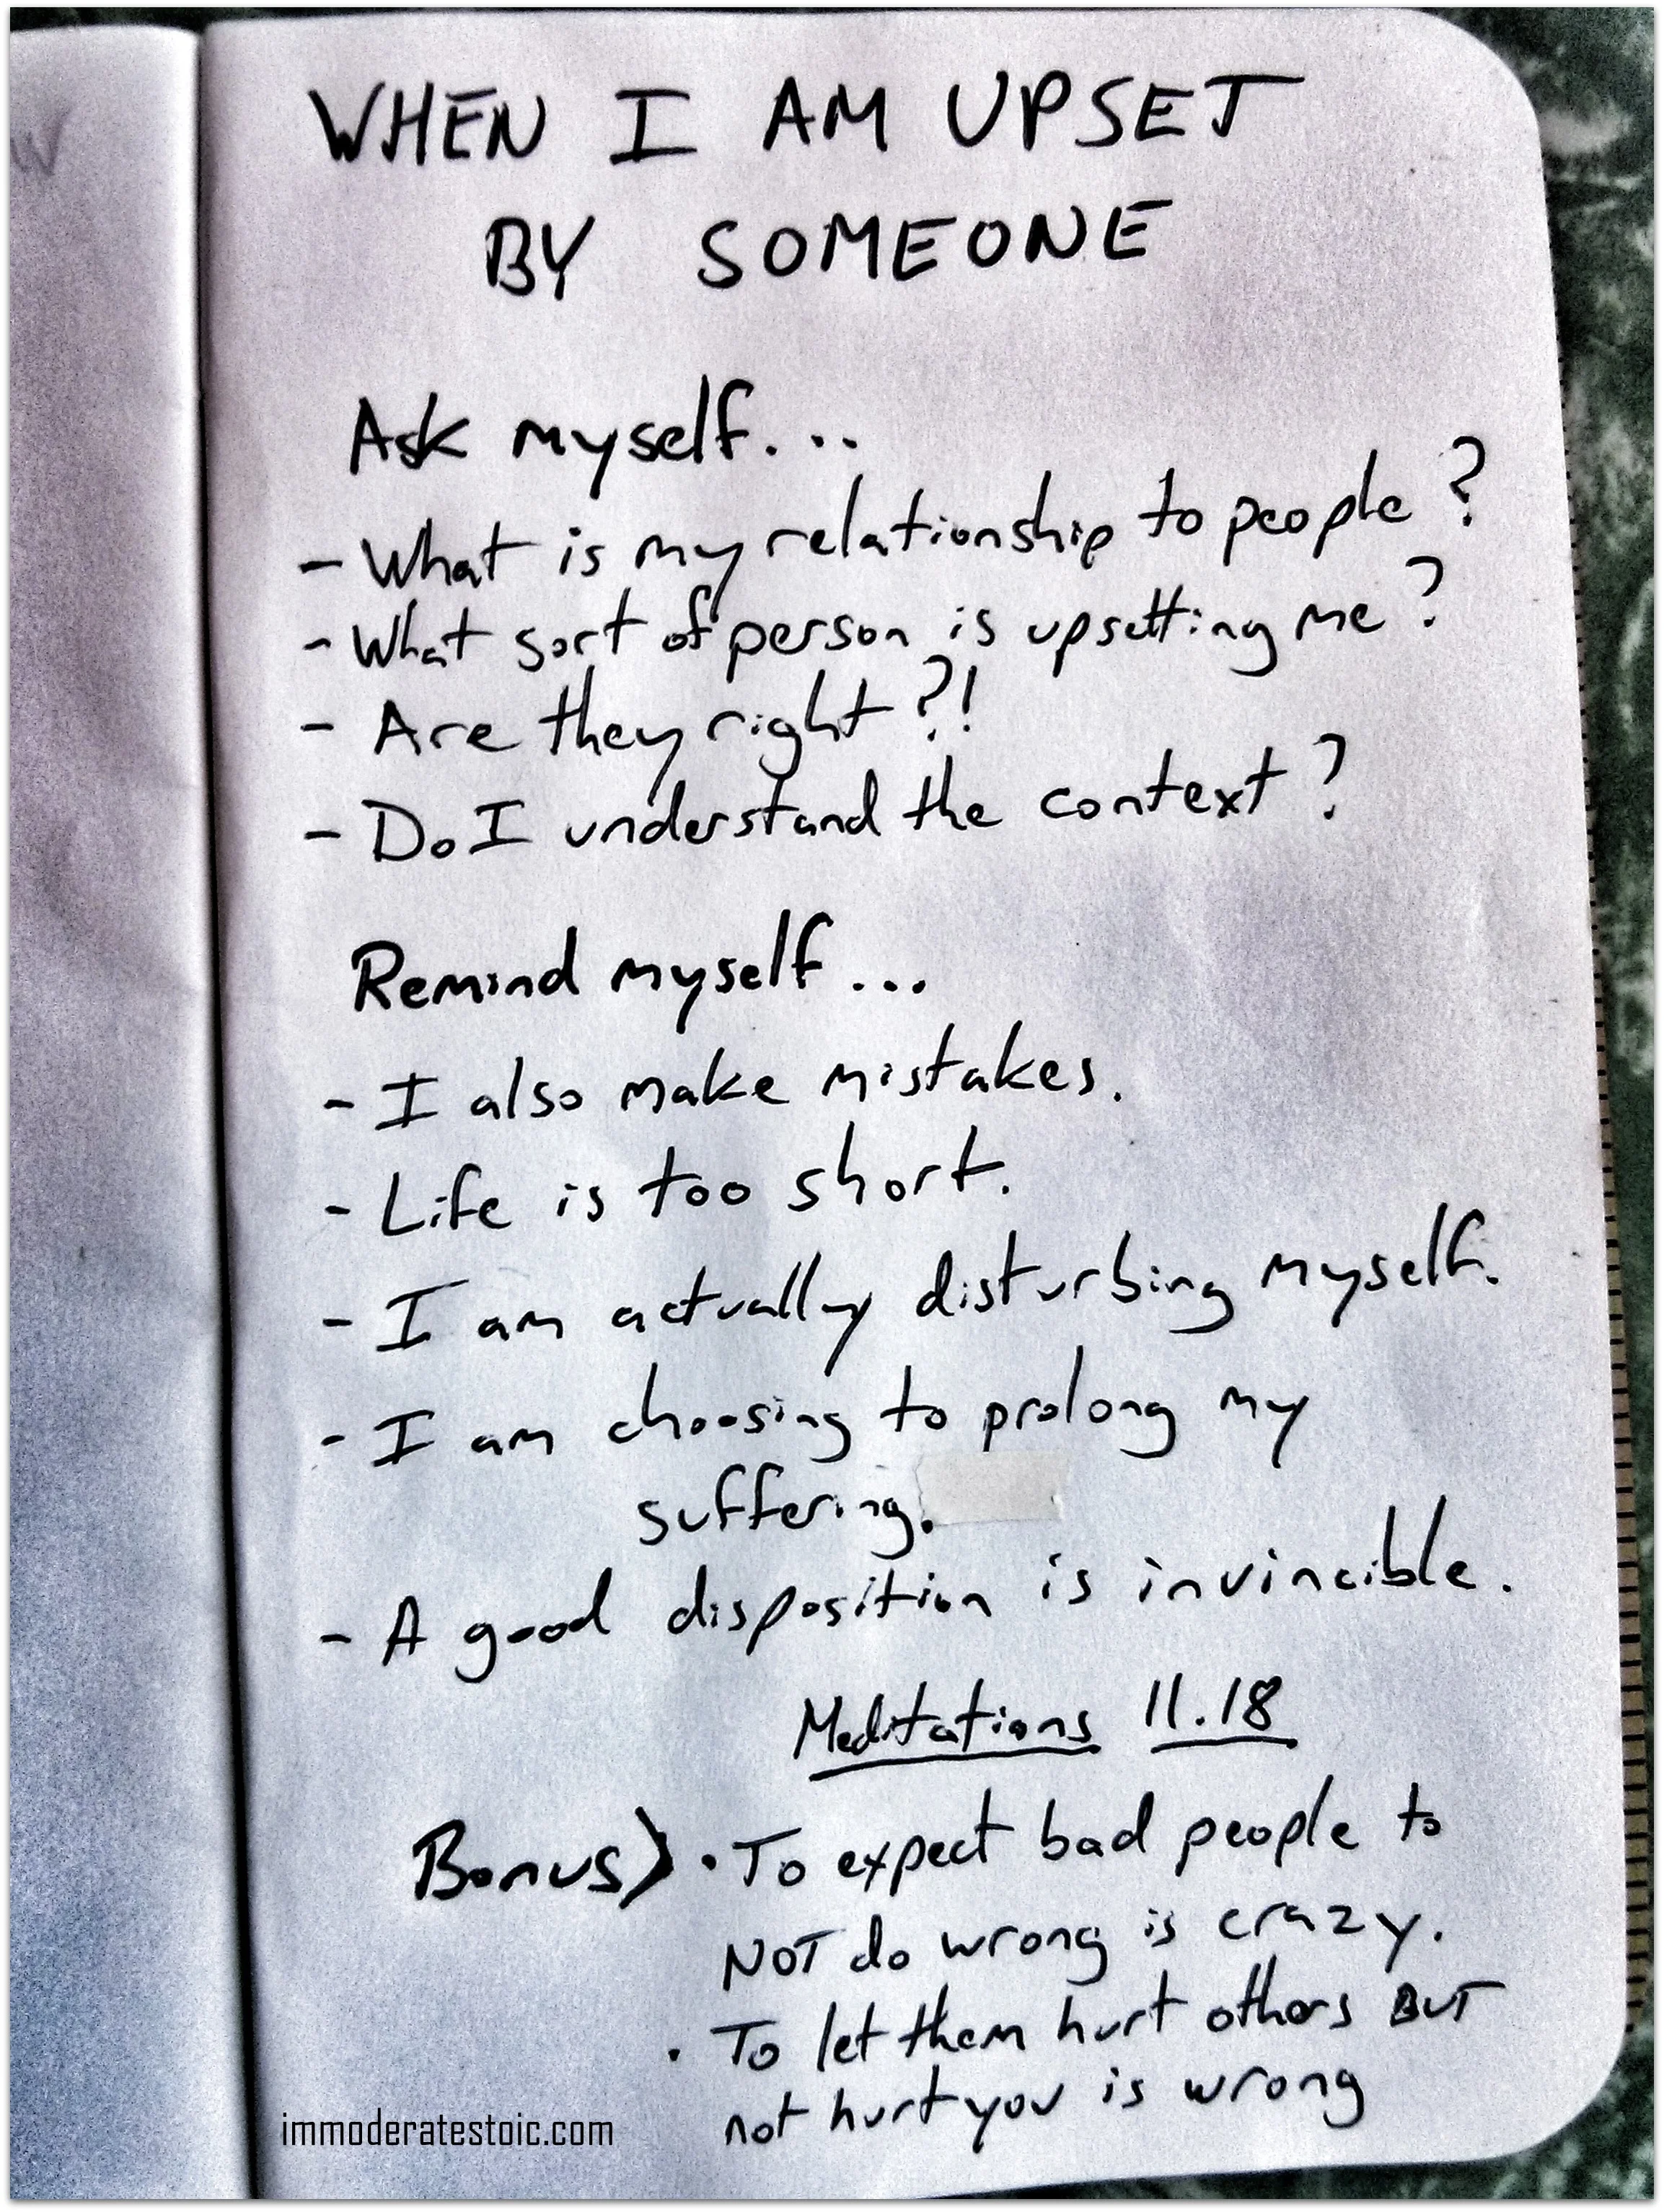 WHEN I AM UPSET
BY SOMEONE
Ask myself...
- What is my relationship to people?
- What sort of person is upsetting me?
- Are they right?!
- Do I understand the context?
Remind myself...
- I also make mistakes.
- Life is too short.
- I am actually disturbing myself.
- I am choosing to prolong my
suffering.
- A good disposition is invincible.
Meditations 11.18
Bonus) • To expect bad people to
NOT do wrong is crazy.
• To let them hurt others BUT
not hurt you is wrong
immoderatestoic.com